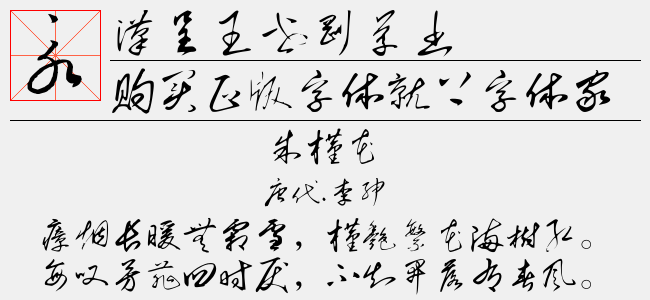 永
汉呈王世刚草书
购买正版字体就上字体家
朱槿花
唐代.李绅
瘴烟长暖无霜雪，槿艳繁花满树红。
每叹芳菲四时厌，不知开落有春风。